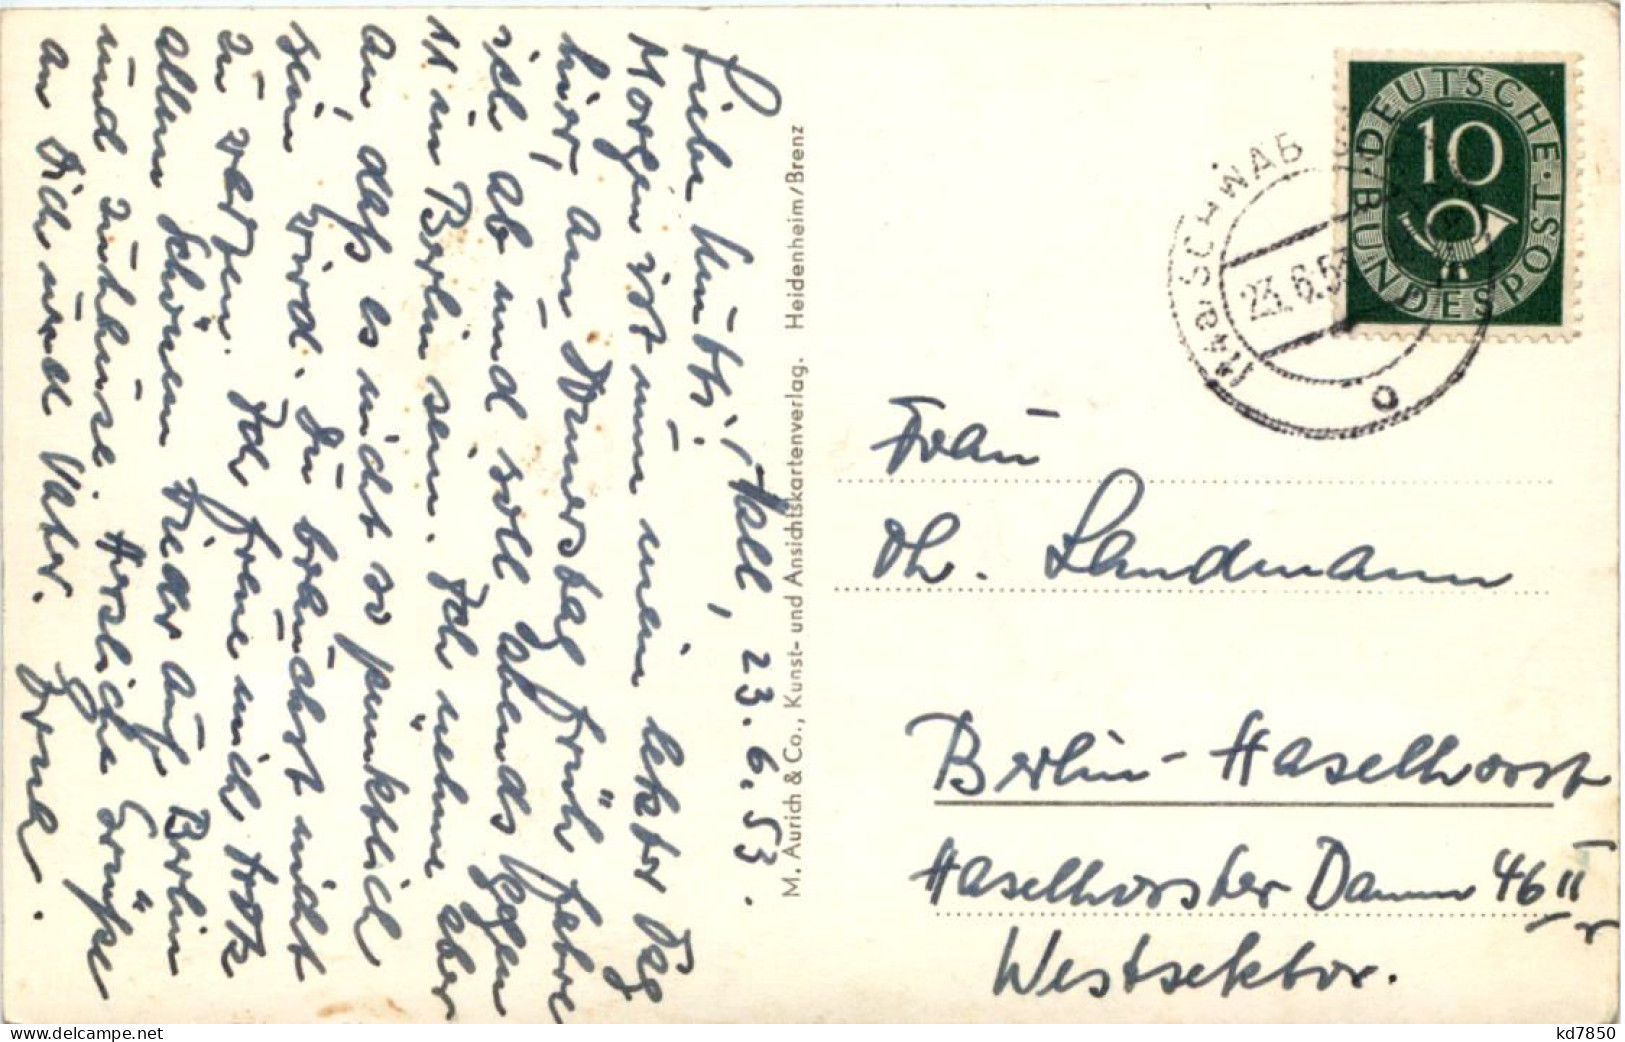 Hall, 23.6.53.
Liebe Mutti!
Morgen ist nun mein letzter Tag
hier, am Donnerstag früh fahre
ich ab und soll abends gegen
11 in Berlin sein. Ich nehme aber
an, daß es nicht so pünktlich
sein wird. Du brauchst nicht
zu warten. Ich freue mich trotz
allem Schönen wieder auf Berlin
und zuhause. Herzliche Grüße
an Dich und Vater.
M. Aurich & Co., Kunst- und Ansichtskartenverlag. Heidenheim/Brenz
DEUTSCHE BUNDESPOST
10
(14a) SCHWÄB
23.6.5
Frau
Ch. Landmann
Berlin-Haselhorst
Haselhorster Damm 46 II
r
Westsektor.
kd7850